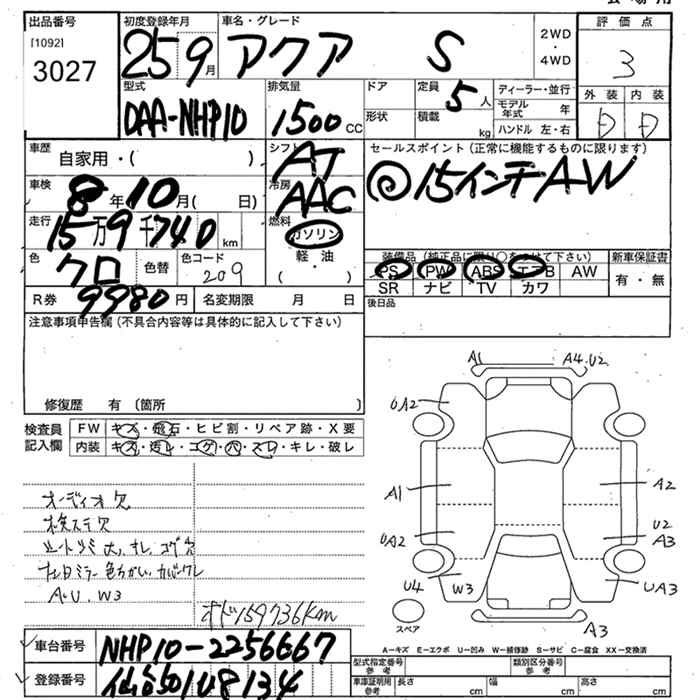 出品番号
[1092]
3027
初度登録年月
25 9月
車名・グレード
アクア S
2WD
・
4WD
評価点
3
型式
DAA-NHP10
排気量
1500CC
ドア
形状
定員 5人
積載 kg
ディーラー・並行
モデル年式 年
ハンドル 左・右
外装 内装
D D
車歴
自家用・( )
シフト
AT
セールスポイント (正常に機能するものに限ります)
◎15インチAW
車検
8年10月( 日)
冷房
AAC
走行
15万9千740km
燃料
ガソリン
軽・油
( )
色
クロ
色替
色コード
209
装備品 (純正品に限り○をつけて下さい)
PS PW ABS エアB AW
SR ナビ TV カワ
新車保証書
有・無
R券 9980円
名変期限 月 日
後日品
注意事項申告欄 (不具合内容等は具体的に記入して下さい)
修復歴 有 〔箇所 〕
検査員
記入欄
FW キズ・飛石・ヒビ割・リペア跡・X要
内装 キズ・汚レ・コゲ・穴・スレ・キレ・破レ
オーディオ欠
検ステ欠
A・U、W3
オド159736km
A1 A4.U2
UA2
A1 A2
UA2
U2
A3
U4 W3
UA3
A3
スペア
A=キズ E=エクボ U=凹み W=補修跡 S=サビ C=腐食 XX=交換済
車台番号 NHP10-2256667
登録番号
型式指定番号
参考
類別区分番号
参考
車庫証明用
参考
長さ cm 幅 cm 高さ cm